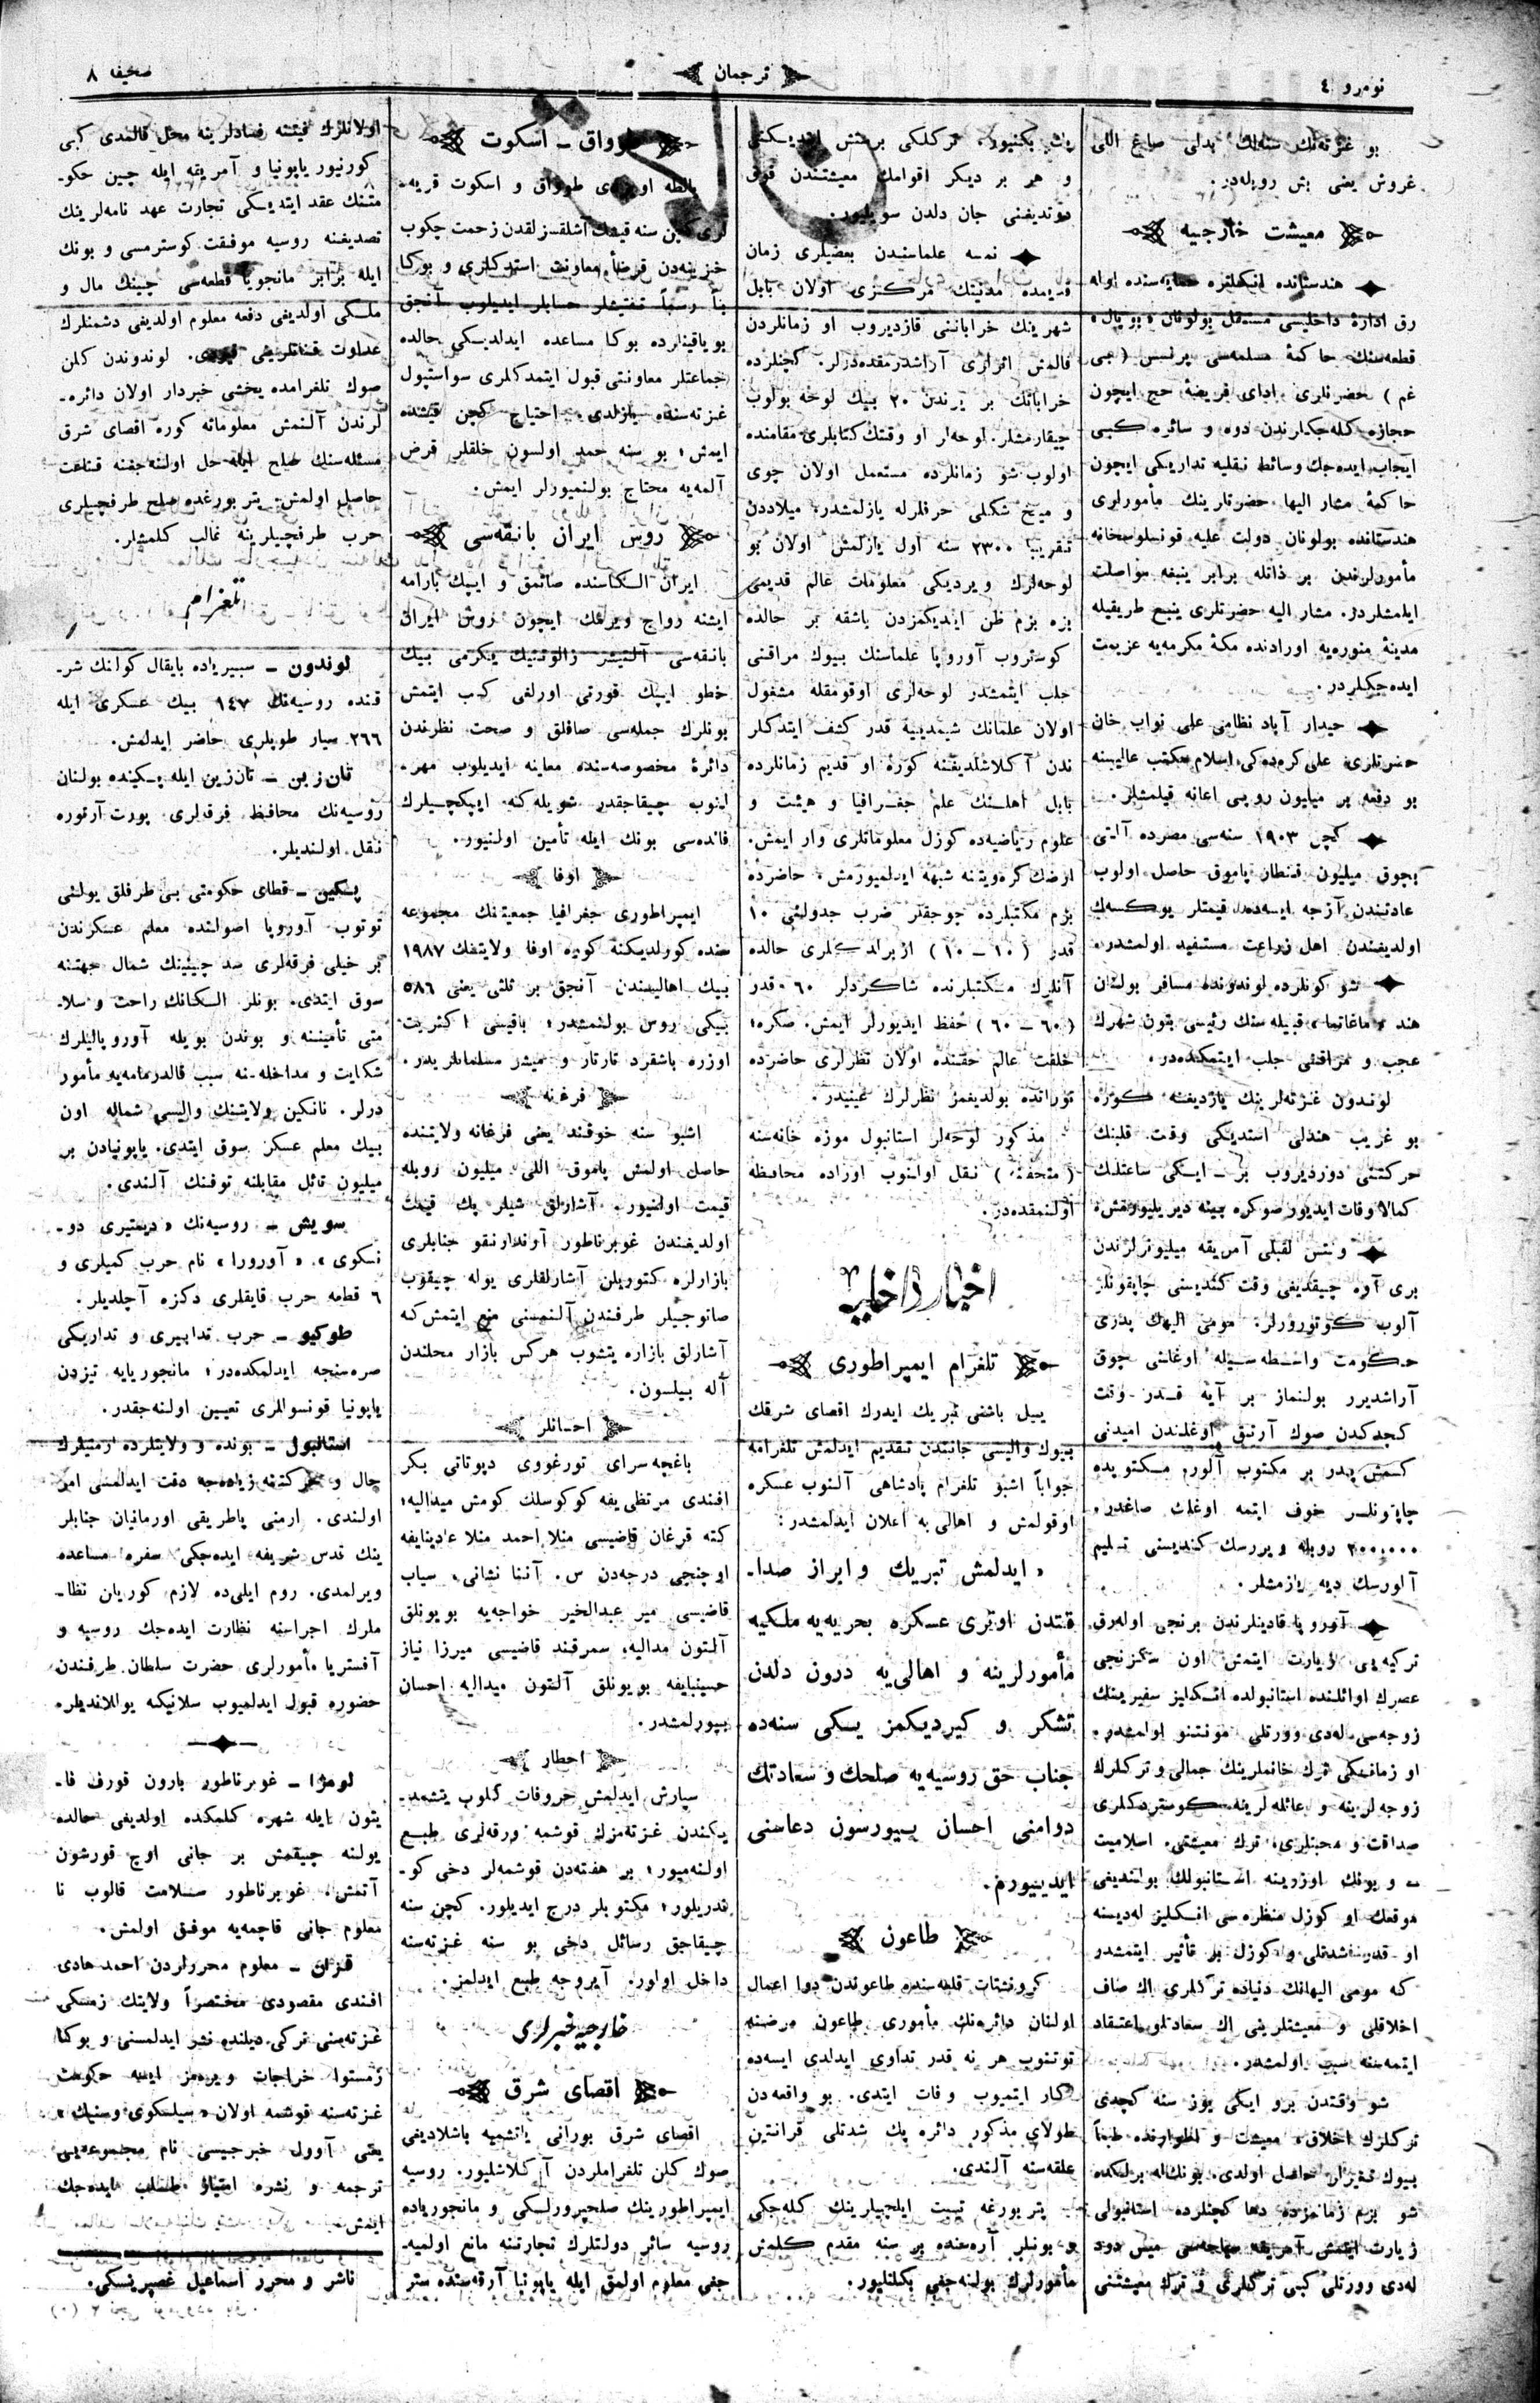 نومرو ٤
ترجمان
صحیفه ٨
بو غزته‌نك سنه‌لك بدلی صاغ اللی
غروش یعنی بش روبله‌در.
معیشت خارجیه
هندستانده انكلتره حمایه‌سنده اوله
رق ادارهٔ داخلیسی مستقل بولونان «بوپال»
قطعه‌سنك حاكمهٔ مسلمه‌سی پرنسس (بی
غم) حضرتلری ادای فریضهٔ حج ایچون
حجازه كله‌جكلرندن دوه و سائره كبی
ایجاب ایده‌جك وسائط نقلیه تداریكی ایچون
حاكمهٔ مشار الیها حضرتلرینك مأمورلری
هندستانده بولونان دولت علیه قونسلوسخانه
مأمورلرندن بر ذاتله برابر ینبغه مواصلت
ایلمشلردر. مشار الیه حضرتلری ینبع طریقیله
مدینهٔ منوره‌یه اورادنده مكهٔ مكرمه‌یه عزیمت
ایده‌جكلردر.
حیدار آباد نظامی علی نواب خان
حضرتلری علی كره‌ده‌كی اسلام مكتب عالیسنه
بو دفعه بر میلیون روپی اعانه قیلمشلر.
كچن ١٩٠٣ سنه‌سی مصرده آلتی
بچوق میلیون قنطار پاموق حاصل اولوب
عادتندن آزجه ایسه‌ده قیمتلر یوكسه‌ك
اولدیغندن اهل زراعت مستفید اولمشدر.
شو كونلرده لوندونده مسافر بولنان
هند «ماغاتما» قبیله سنك رئیسی بتون شهرك
عجب و مراقنی جلب ایتمكده‌در.
لوندون غزته‌لرینك یازدیغنه كوره
بو غریب هندلی استدیكی وقت قلبنك
حركتنی دوردیروب بر ـ ایكی ساعتلك
كمالا وفات ایدیور صوكره یینه دیریلیورمش.
ونتس لقبلی آمریقه میلیونرلرندن
بری آوه چیقدیغی وقت كندیسنی چاپقونلر
آلوب كوتورورلر. مومی الیهك پدری
حكومت واسطه سیله اوغلنی چوق
آراشدیرر بولنماز بر آیه قدر وقت
كچدكدن صوك آرتق اوغلندن امیدنی
كسمش پدر بر مكتوب آلورم مكتوبده
چاپونلر خوف ایتمه اوغلك صاغدر.
٢٠٠,٠٠٠ روبله ویررسك كندیسنی تسلیم
آلورسك دیه یازمشلر.
آوروپا قادینلرندن برنجی اوله‌رق
تركیه‌یی زیارت ایتمش اون سكزنجی
عصرك اوائلنده استانبولده انكلیز سفیرینك
زوجه‌سی له‌دی وورتلی مونتنو اولمشدر.
او زمانكی ترك خانملرینك جمالی و تركلرك
زوجه‌لرینه و عائله‌لرینه كوستردكلری
صداقت و محبتلری، ترك معیشتی، اسلامیت
و بونك اوزرینه استانبولك بولندیغی
موقعك او كوزل منظره‌سی انكلیز له‌دیسنه
او قدر شدتلی و كوزل بر تأثیر ایتمشدر
كه مومی الیهانك دنیاده تركلری اك صاف
اخلاقلی و معیشتلرینی اك سعادتلی اعتقاد
ایتمه‌سنه سبب اولمشدر.
شو وقتدن برو ایكی یوز سنه كچدی
تركلرك اخلاق، معیشت و اطوارنده طبعاً
بیوك تغیرلر حاصل اولدی. بونكله برلكده
شو بزم زمانمزده دها كچنلرده استانبولی
زیارت ایتمش آمریقه سیاحه‌سی میس دود
له‌دی وورتلی كبی تركلری و ترك معیشتنی
پك بكنیور، تركلكی برمتش ایدیكنی
و هر بر دیكر اقوامك معیشتندن فوق
دوتدیغنی جان دلدن سویلیور.
نمسه علماسندن بعضیلری زمان
قدیمده مدنیتك مركزی اولان بابل
شهرینك خرابانی قازدیروب او زمانلردن
قالمش اثرلری آراشدرمقده‌درلر. كچنلرده
خرابانك بر یرندن ٢٠ بیك لوحه بولوب
چیقارمشلر. لوحه‌لر او وقتك كتابلری مقامنده
اولوب شو زمانلرده مستعمل اولان چوی
و میخ شكلی حرفلرله یازلمشدر، میلاددن
تقریبا ٢٣٠٠ سنه اول یازلمش اولان بو
لوحه‌لرك ویردیكی معلومات عالم قدیمی
بزه بزم ظن ایتدیكمزدن باشقه بر حالده
كوستروب آوروپا علماسنك بیوك مراقنی
جلب ایتمشدر لوحه‌لری اوقومقله مشغول
اولان علمانك شیمدییه قدر كشف ایتدكلر
ندن آكلاشلدیغنه كوره او قدیم زمانلرده
بابل اهلنك علم جغرافیا و هیئت و
علوم ریاضیه‌ده كوزل معلوماتلری وار ایمش.
ارضك كره‌ویتنه شبهه ایدلمیورمش، حاضرده
بزم مكتبلرده چوجقلر ضرب جدولنی ١٠
قدر (١٠ ـ ١٠) ازبرلدكلری حالده
آنلرك مكتبلرنده شاكردلر ٦٠ قدر
(٦٠ ـ ٦٠) حفظ ایدیورلر ایمش. صكره؛
خلقت عالم حقنده اولان نظرلری حاضرده
توراتده بولدیغمز نظرلرك عینیدر.
مذكور لوحه‌لر استانبول موزه خانه‌سنه
(متحفنه) نقل اولنوب اوراده محافظه
اولنمقده‌در.
اخبار داخلیه
تلغرام ایمپراطوری
ییل باشنی تبریك ایدرك اقصای شرقك
بیوك والیسی جانبندن تقدیم ایدلمش تلغرامه
جواباً اشبو تلغرام پادشاهی آلنوب عسكره
اوقولمش و اهالی به اعلان ایدلمشدر:
«ایدلمش تبریك و ابراز صدا-
قتدن اوتری عسكره بحریه‌یه ملكیه
مأمورلرینه و اهالی‌یه درون دلدن
تشكر و كیردیكمز یكی سنه‌ده
جناب حق روسیه‌یه صلحك و سعادتك
دوامنی احسان بیورسون دعاسنی
ایدییورم.
طاعون
كرونشتات قلعه‌سنده طاعوندن دوا اعمال
اولنان دائره‌نك مأموری طاعون مرضنه
توتنوب هر نه قدر تداوی ایدلدی ایسه‌ده
كار ایتمیوب وفات ایتدی. بو واقعه‌دن
طولای مذكور دائره پك شدتلی قرانتین
علقه‌سنه آلندی.
پتربورغه تیبت ایلچیلرینك كله‌جكی
و بونلر آره‌سنده بر سنه مقدم كلمش
مأمورلرك بولنه‌جغی بكلنیور.
طوواق ـ اسكوت
یالطه اویازی طوواق و اسكوت قریه-
لری كچن سنه قیشك آشلقسزلقدن زحمت چكوب
خزینه‌دن قرضاً معاونت استدكلری و بوكا
بناً رسماً تفتیشلر حسابلر ایدیلوب آنجق
بو یاقینلرده بوكا مساعده ایدلدیكی حالده
جماعتلر معاونتی قبول ایتمدكلری سواستپول
غزته‌سنده یازلدی. احتیاج كچن قیشده
ایمش؛ بو سنه حمد اولسون خلقلر قرض
آلمه‌یه محتاج بولنمیورلر ایمش.
روس ایران بانقه‌سی
ایران الكاسنده صاتمق و ایپك بارامه
ایشنه رواج ویرمك ایچون روس ایران
بانقه‌سی آلتیشر زالوتنیك یكرمی بیك
خطو ایپك قورتی اورلغی كسب ایتمش
بونلرك جمله‌سی صافلق و صحت نظرندن
دائرهٔ مخصوصه‌سنده معاینه ایدیلوب مهر-
لنوب چیقاجقدر شویله‌كه ایپكچیلرك
فائده‌سی بونك ایله تأمین اولنیور.
اوفا
ایمپراطوری جغرافیا جمعیتنك مجموعه
سنده كورلدیكنه كوره اوفا ولایتنك ١٩٨٧
بیك اهالیسندن آنجق بر ثلثی یعنی ٥٨٦
بیكی روس بولنمشدر؛ باقیسی اكثریت
اوزره باشقرد تارتار و میشر مسلمانلریدر.
فرغانه
اشبو سنه خوقند یعنی فرغانه ولایتنده
حاصل اولمش پاموق اللی میلیون روبله
قیمت اولنیور. آشارلق شیلر پك قیمت
اولدیغندن غوبرناطور آوندارنقو جنابلری
بازارلره كتوریلن آشارلقلری یوله چیقوب
صاتوجیلر طرفندن آلنمسنی منع ایتمش‌كه
آشارلق بازاره یتشوب هركس بازار محلندن
آله بیلسون.
احسانلر
باغچه‌سرای تورغووی دپوتاتی بكر
افندی مرتظی یفه كوكوسلك كومش میدالیه؛
كته قرغان قاضیسی منلا احمد منلا عادینایفه
اوچنجی درجه‌دن س. آننا نشانی، سیاب
قاضیسی میر عبدالخیر خواجه‌یه بویونلق
آلتون مدالیه، سمرقند قاضیسی میرزا نیاز
حسینبایفه بویونلق آلتون میدالیه احسان
بیورلمشدر.
احطار
سپارش ایدلمش حروفات كلوب یتشمد-
یكندن غزته‌مزك قوشمه ورقه‌لری طبع
اولنه‌میور؛ بر هفته‌دن قوشمه‌لر دخی كو-
ندریلور؛ مكتوبلر درج ایدیلور. كچن سنه
چیقاجق رسائل دخی بو سنه غزته‌سنه
داخل اولور. آیروجه طبع ایدلمز.
خارجیه خبرلری
اقصای شرق
اقصای شرق بورانی یاتشمیه باشلادیغی
صوك كلن تلغراملردن آكلاشلیور. روسیه
ایمپراطورینك صلحپرورلكی و مانجوریاده
روسیه سائر دولتلرك تجارتنه مانع اولمیه-
جغی معلوم اولمق ایله یاپونیا آرقه‌سنده ستر
اولانلرك فیتنه فسادلرینه محل قالمدی كبی
كورنیور یاپونیا و آمریقه ایله چین حكو-
متنك عقد ایتدیكی تجارت عهد نامه‌لرینك
تصدیغنه روسیه موفقت كوسترمسی و بونك
ایله برابر مانجوریا قطعه‌سی چینك مال و
ملكی اولدیغی دفعه معلوم اولدیغی دشمنلرك
عداوت قنادلرینی قیردی. لوندوندن كلن
صوك تلغرامده یخشی خبردار اولان دائره-
لرندن آلنمش معلوماته كوره اقصای شرق
مسئله‌سنك صلح ایله حل اولنه‌جغنه قناعت
حاصل اولمش. پتربورغده صلح طرفچیلری
حرب طرفچیلرینه غالب كلمشلر.
تلغرام
لوندون ـ سیبیریاده بایقال كولنك شر-
قنده روسیه‌نك ١٤٧ بیك عسكری ایله
٢٦٦ سیار طوپلری حاضر ایدلمش.
تان‌زین ـ تان‌زین ایله پكینده بولنان
روسیه‌نك محافظ فرقه‌لری پورت آرتوره
نقل اولندیلر.
پكین ـ قطای حكومتی بی طرفلق یولنی
توتوب آوروپا اصولنده معلم عسكرندن
بر خیلی فرقه‌لری سد چینینك شمال جهتنه
سوق ایتدی. بونلر الكانك راحت و سلا-
متی تأمیننه و بوندن بویله آوروپالیلرك
شكایت و مداخله‌سنه سبب قالدرمامه‌یه مأمور
درلر. نانكین ولایتنك والیسی شماله اون
بیك معلم عسكر سوق ایتدی. یاپونیادن بر
میلیون تائل مقابلنه توفنك آلندی.
سویش ـ روسیه‌نك «دیمتیری دو-
نسكوی»، «آورورا» نام حرب كمیلری و
٦ قطعه حرب قایقلری دكزه آچلدیلر.
طوكیو ـ حرب تدابیری و تداریكی
صره‌سنجه ایدلمكده‌در؛ مانجوریایه تیزدن
یاپونیا قونسوللری تعیین اولنه‌جقدر.
استانبول ـ بونده و ولایتلرده ارمنیلرك
حال و حركتنه زیاده‌جه دقت ایدلمسی امر
اولندی. ارمنی پاطریقی اورمانیان جنابلر
ینك قدس شریفه ایده‌جكی سفره مساعده
ویرلمدی. روم ایلی‌ده لازم كوریلن نظا-
ملرك اجراسنه نظارت ایده‌جك روسیه و
آفستریا مأمورلری حضرت سلطان طرفندن
حضوره قبول ایدلمیوب سلانیكه یوللاندیلر.
لومژا ـ غوبرناطور بارون قورف فا-
یتون ایله شهره كلمكده اولدیغی حالده
یولنه چیقمش بر جانی اوچ قورشون
آتمش. غوبرناطور سلامت قالوب نا
معلوم جانی قاچمه‌یه موفق اولمش.
قزان ـ معلوم محررلردن احمد هادی
افندی مقصودی مختصراً ولایتك زمسكی
غزته‌سنی تركی دیلنده نشر ایدلمسنی و بوكا
زمستوا خراجات ویرمز ایسه حكومت
غزته‌سنه قوشمه اولان «سیلسكوی وستنیك»
یعنی آوول خبرجیسی نام مجموعه‌یی
ترجمه و نشره امتیاز طلب ایده‌جك
ایمش.
ناشر و محرر اسماعیل غصپرینسكی.